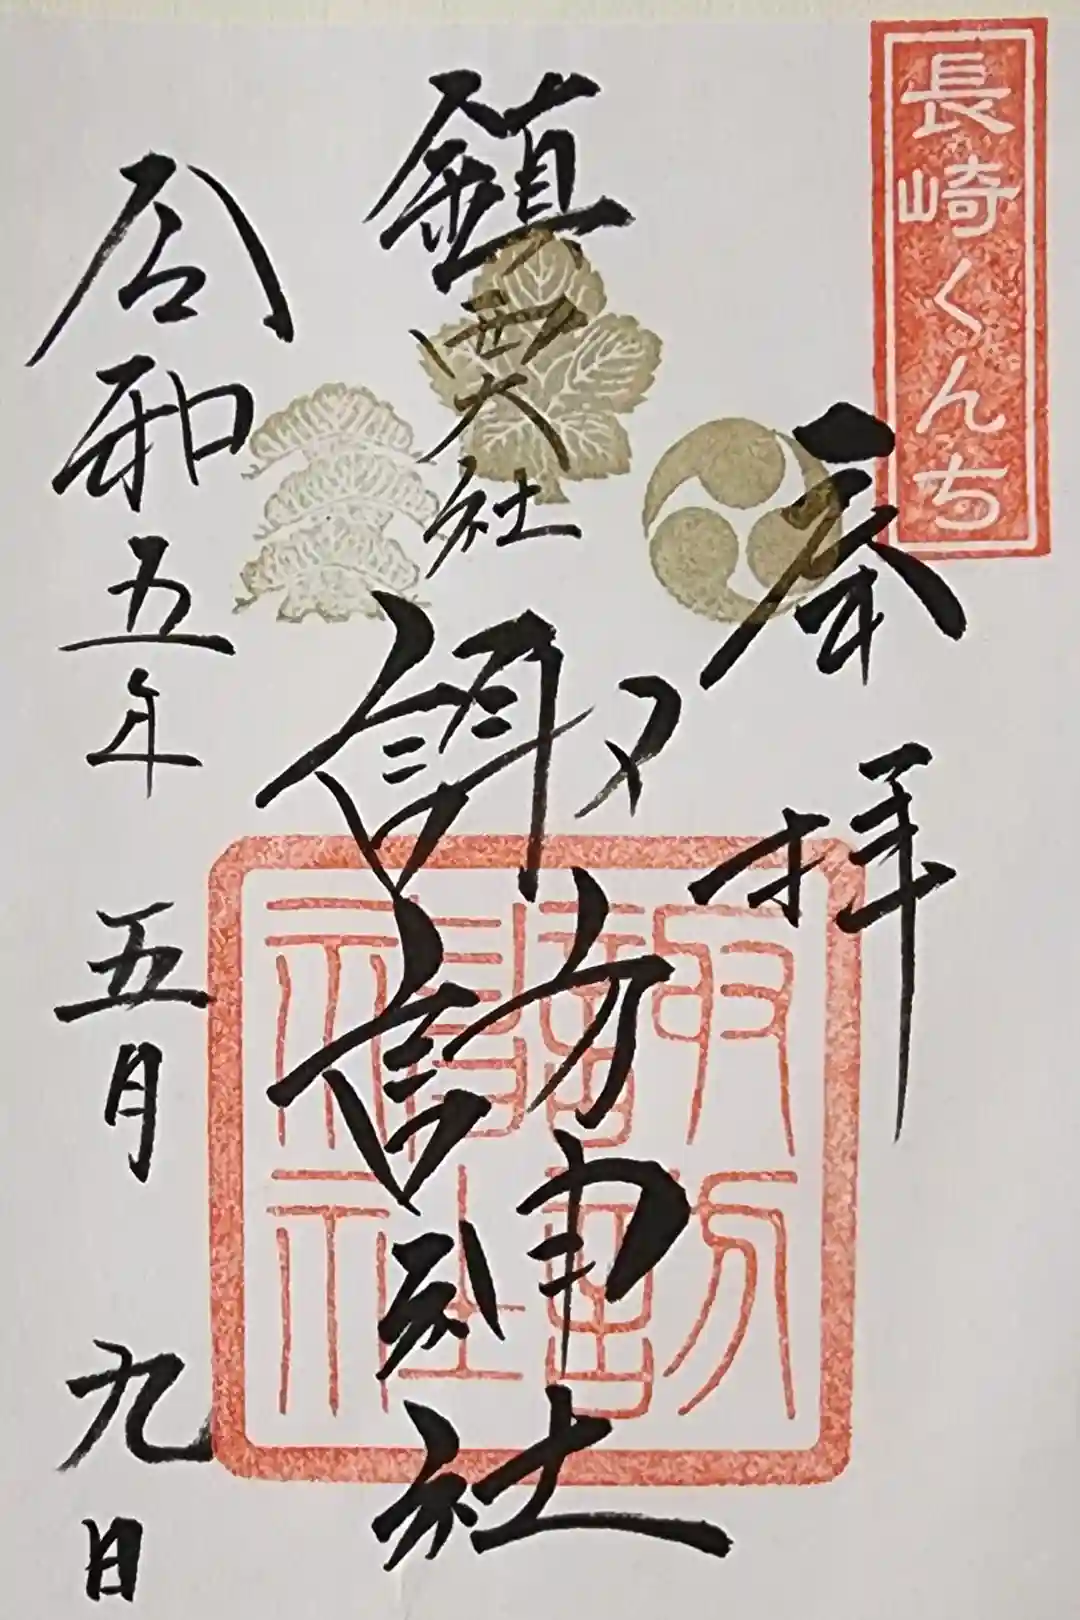 長崎くんち
奉拝
鎮西大社
諏訪神社
令和五年五月九日
諏訪神社